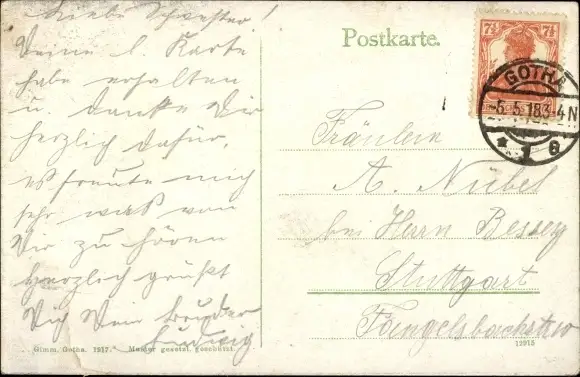 Liebe Schwester!
Deine l. Karte
habe erhalten
u. danke Dir
herzlich dafür,
es freute mich
sehr was von
Dir zu hören
Herzlich grüßt
Dich Dein Bruder
Ludwig
Gimm. Gotha. 1917. Muster gesetzl. geschützt.
Postkarte.
7½ 7½
GOTHA
-5.5.18.3-4N
* 1 G
Fräulein
A. Nübel
bei Herrn Bessey
Stuttgart
Fangelsbachstr
12915